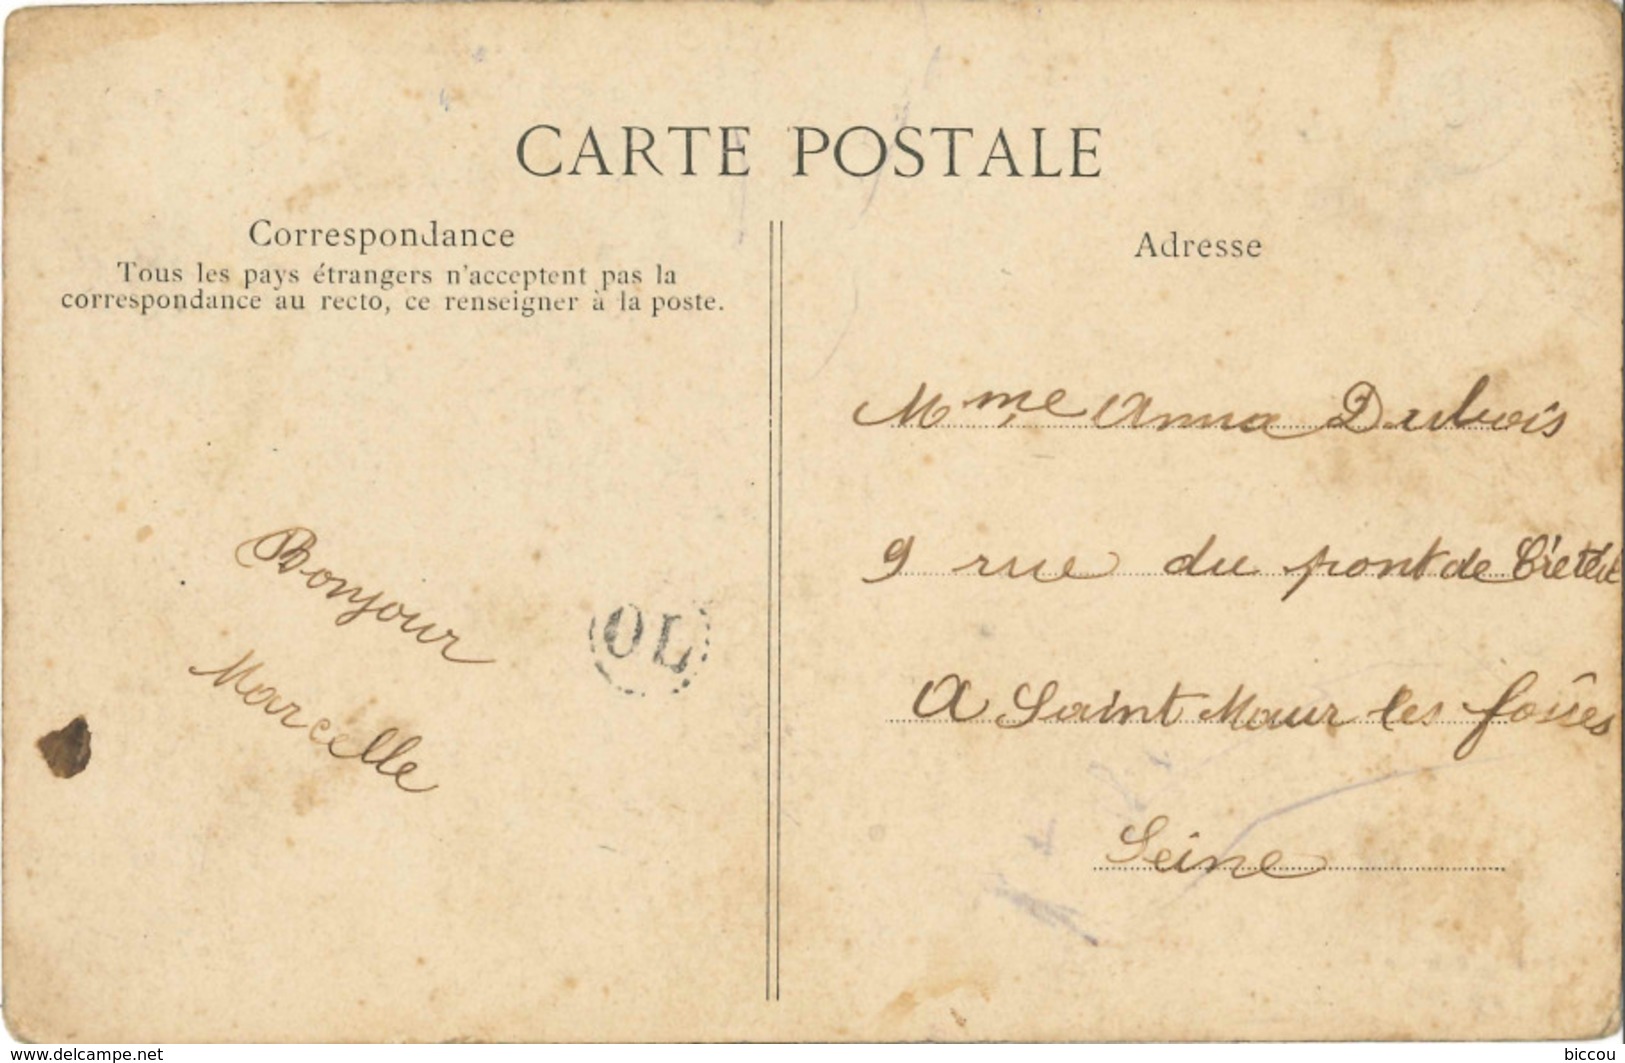 CARTE POSTALE
Correspondance
Tous les pays étrangers n'acceptent pas la
correspondance au recto, ce renseigner à la poste.
Bonjour
Marcelle
OL
Adresse
Mme Anna Dubois
9 rue du pont de Créteil
A Saint Maur les fossés
Seine
www.delcampe.net
biccou